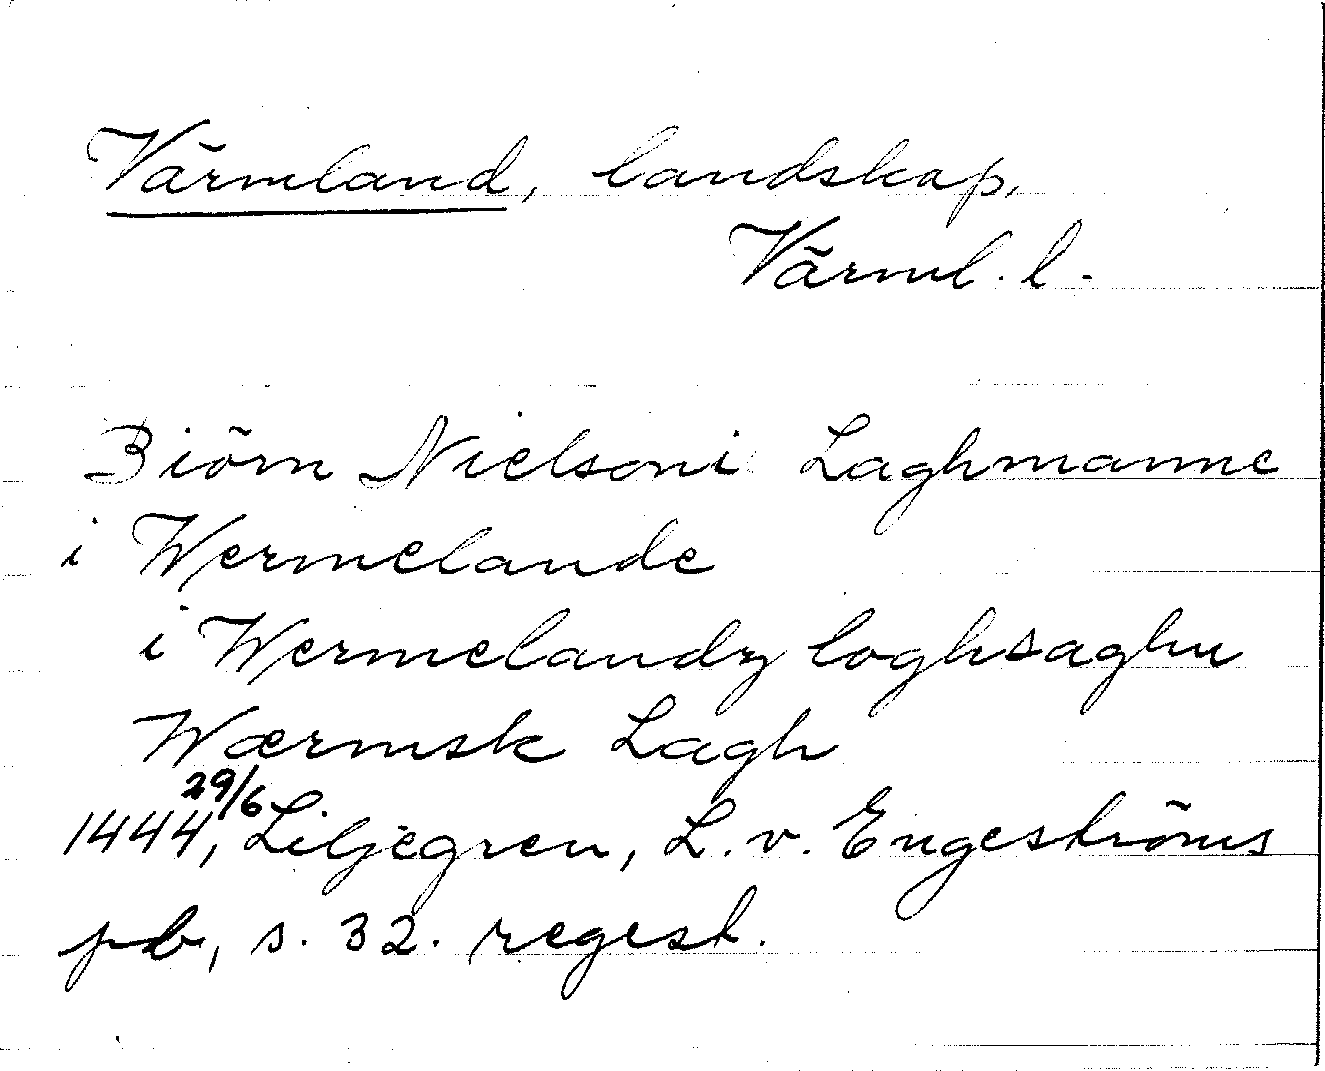 Värmland, landskap,
Värml. l.
Biörn Nielsoni Laghmanne
i Wermelande
i Wermelandz loghsaghu
Wærmsk Lagh
1444 29/6, Liljegren, L. v. Engeströms
pb, s. 32. regest.